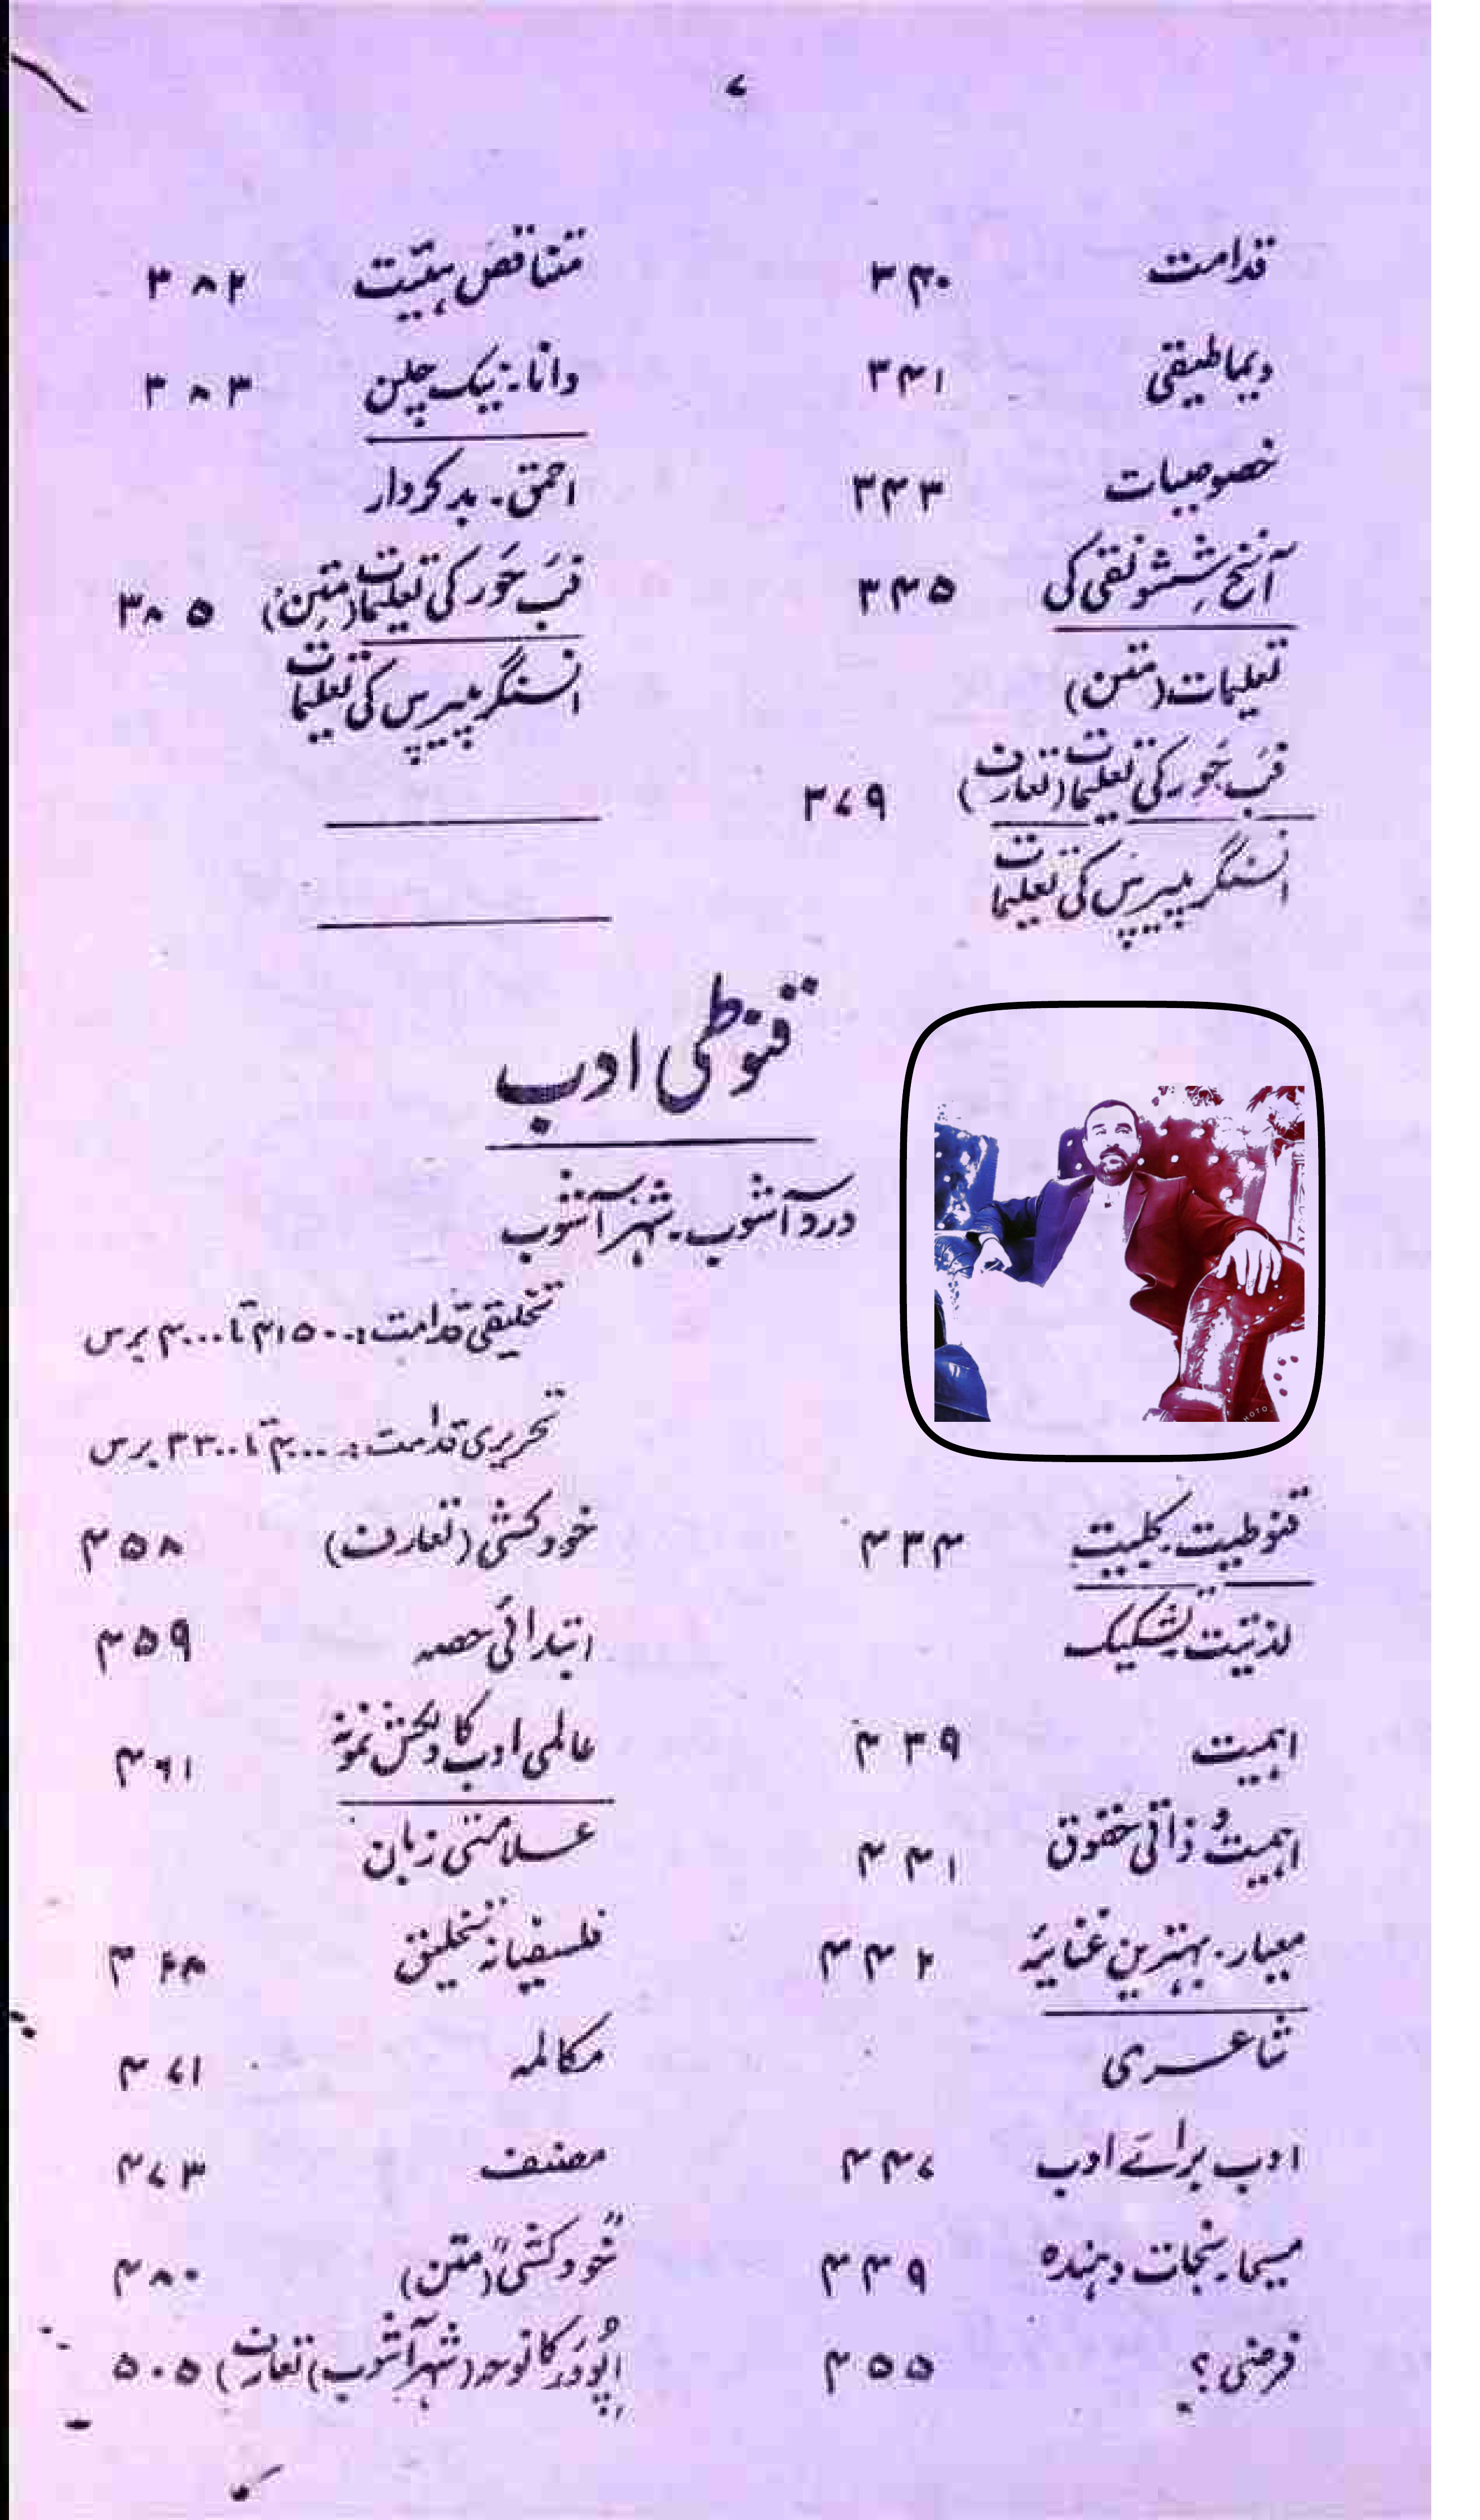 ۷
قدامت ۳۴۰
دیماطیقی ۳۴۱
خصوصیات ۳۴۳
آنخ شِشونقی کی ۳۴۵
تعلیمات (متن)
فَب حَور کی تعلیمات (تعارف) ۳۷۹
انسنگر پیپرس کی تعلیمات
متناقض ہیئت ۳۸۲
دانا۔ نیک چلن ۳۸۳
احمق۔ بدکردار
فَب حَور کی تعلیمات (متن) ۳۸۵
انسنگر پیپرس کی تعلیمات
قنوطی ادب
درد آشوب۔ شہر آشوب
تخلیقی قدامت:۔ ۴۱۵۰ تا ۴۰۰۰ برس
تحریری قدامت:۔ ۴۰۰۰ تا ۳۳۰۰ برس
قنوطیت۔ کلبیت ۴۳۴
لذتیت۔ تشکیک
اہمیت ۴۳۹
اہمیت و ذاتی حقوق ۴۴۱
معیار۔ بہترین غنائیہ ۴۴۲
شاعری
ادب برائے ادب ۴۴۷
مسیحا۔ نجات دہندہ ۴۴۹
فرضی؟ ۴۵۵
خودکشی (تعارف) ۴۵۸
ابتدائی حصہ ۴۵۹
عالمی ادب کا دلکش نمونہ ۴۶۱
علامتی زبان
فلسفیانہ تخلیق ۴۶۸
مکالمہ ۴۷۱
مصنف ۴۷۳
"خودکشی" (متن) ۴۸۰
اِپُووَر کا نوحہ (شہر آشوب) تعارف) ۵۰۵